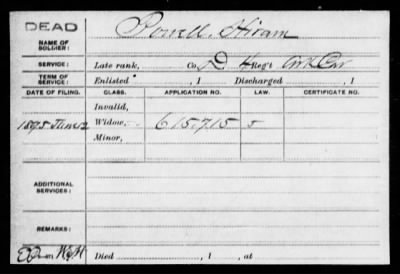 DEAD
NAME OF SOLDIER: Powell, Hiram
SERVICE: Late rank, Co. D 4 Reg't Ark Cav
TERM OF SERVICE: Enlisted , 1 Discharged , 1
DATE OF FILING. CLASS. APPLICATION NO. LAW. CERTIFICATE NO.
Invalid,
1895 June 12 Widow, 615,715 5
Minor,
ADDITIONAL SERVICES:
REMARKS:
Died , 1 , at